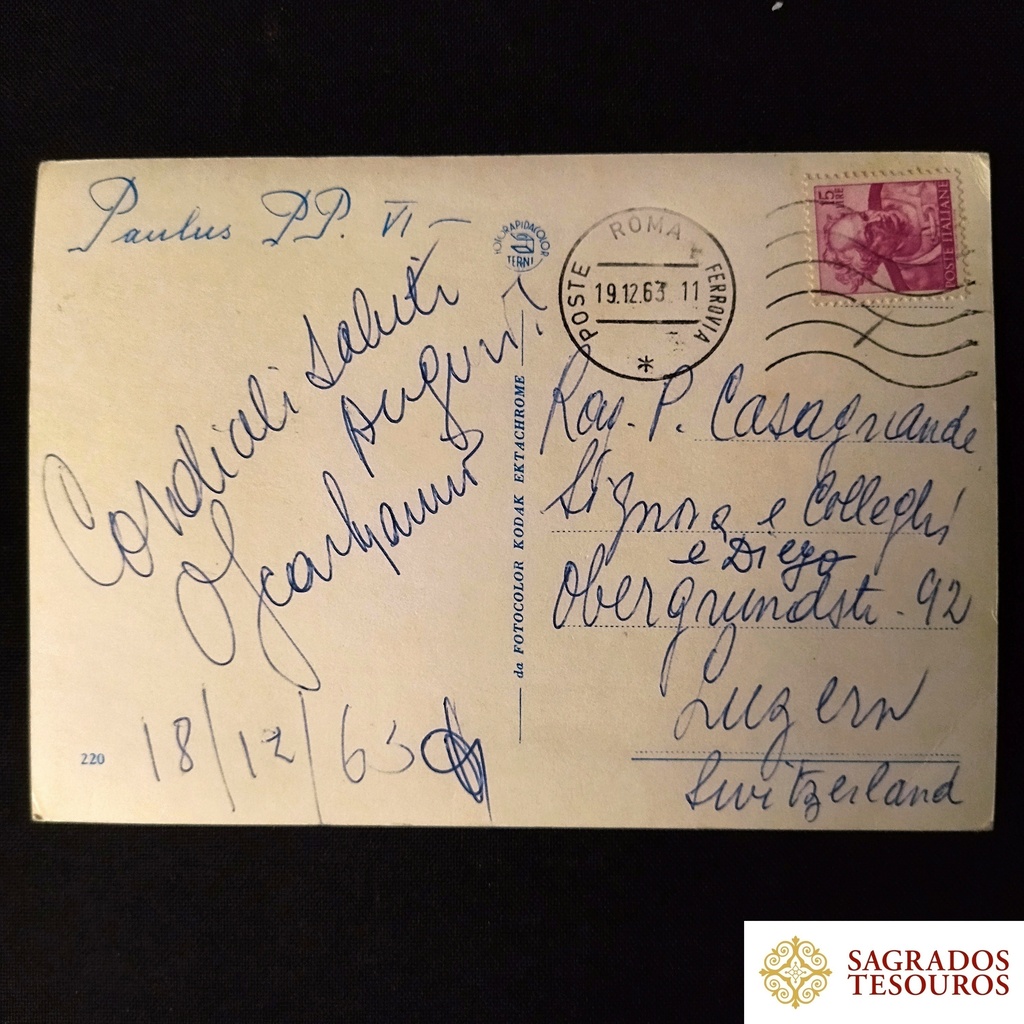 Paulus PP. VI -
Cordiali Saluti
Auguri
18/12/63
220
FOTORAPIDACOLOR
TERNI
da FOTOCOLOR KODAK EKTACHROME
POSTE ROMA FERROVIA
19.12.63 11
*
15 LIRE
POSTE ITALIANE
Rag. P. Casagrande
Signora e Colleghi
e Diego
Obergrundstr. 92
Luzern
Switzerland
SAGRADOS
TESOUROS